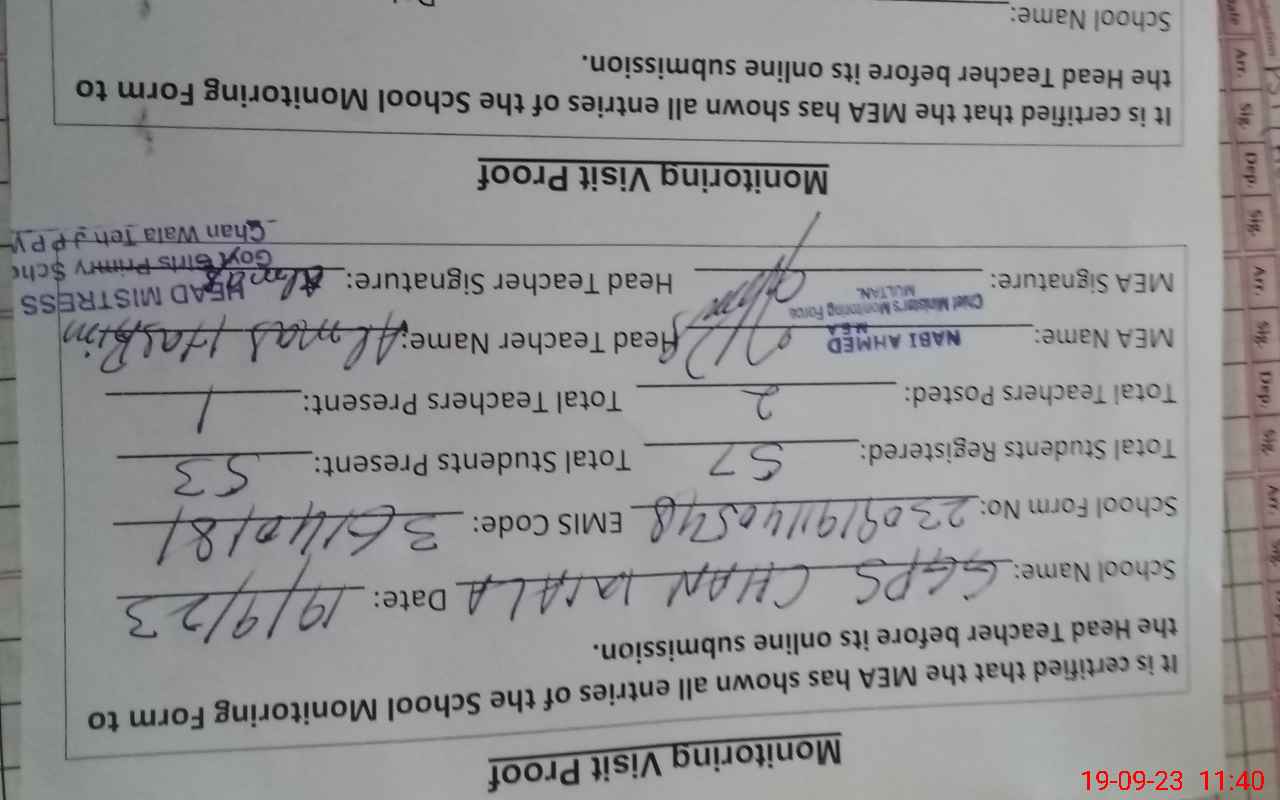 Monitoring Visit Proof
It is certified that the MEA has shown all entries of the School Monitoring Form to
the Head Teacher before its online submission.
School Name: GGPS CHAN WALA Date: 19/9/23
School Form No: 23091911405748 EMIS Code: 36140181
Total Students Registered: 57 Total Students Present: 53
Total Teachers Posted: 2 Total Teachers Present: 1
MEA Name: NABI AHMED Head Teacher Name: Almas Hashim
MEA
Chief Minister's Monitoring Force
MULTAN.
MEA Signature: Head Teacher Signature: Almas
HEAD MISTRESS
Govt Girls Primry Scho
Chan Wala Teh J P P W
Monitoring Visit Proof
It is certified that the MEA has shown all entries of the School Monitoring Form to
the Head Teacher before its online submission.
School Name:
Arr. Sig. Dep. Sig. Arr. Sig. Dep. Sig. Arr.
19-09-23 11:40